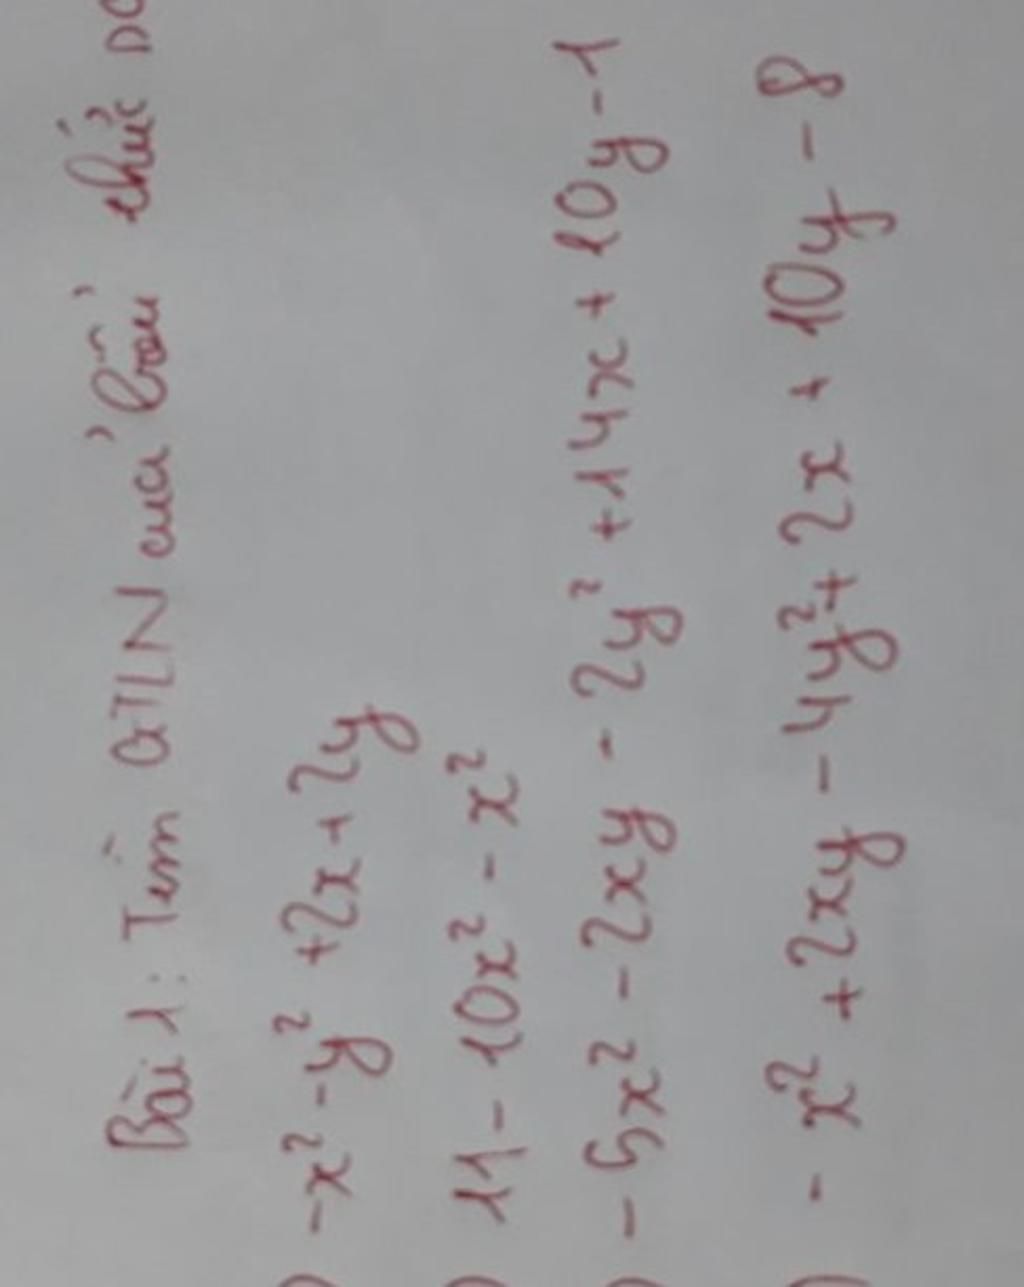 Bài 1: Tìm GTLN của biểu thức
) -x² - y² + 2x + 2y
) 11 - 10x² - x²
) - 5x² - 2xy - 2y² + 14x + 10y - 1
) - x² + 2xy - 4y² + 2x + 10y - 8